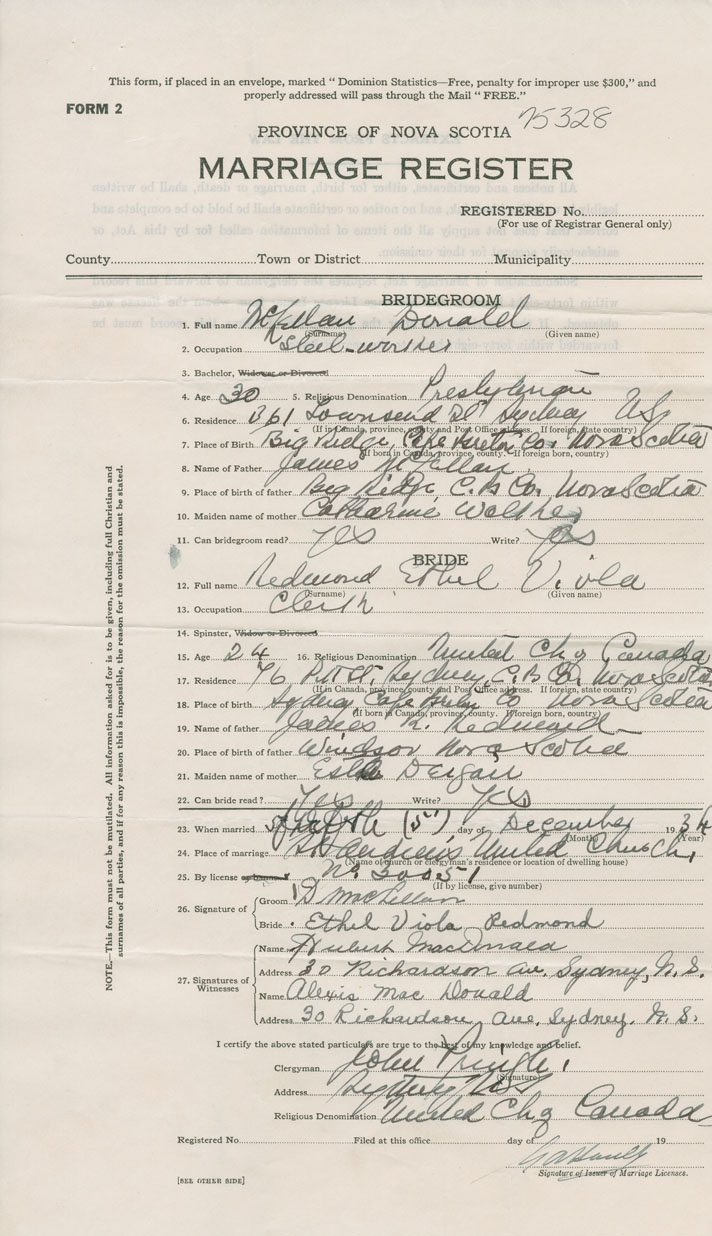 This form, if placed in an envelope, marked " Dominion Statistics—Free, penalty for improper use $300," and
properly addressed will pass through the Mail " FREE."
FORM 2
75328
PROVINCE OF NOVA SCOTIA
MARRIAGE REGISTER
REGISTERED No.
(For use of Registrar General only)
County Town or District Municipality
BRIDEGROOM
1. Full name McLellan Donald
(Surname) (Given name)
2. Occupation Steel-worker
3. Bachelor, Widower or Divorced
4. Age 30 5. Religious Denomination Presbyterian
6. Residence 361 Townsend St Sydney N.S.
(If in Canada, province, county and Post Office address. If foreign, state country)
7. Place of Birth Big Ridge, Cape Breton Co. Nova Scotia
(If born in Canada, province, county. If foreign born, country)
8. Name of Father James McLellan
9. Place of birth of father Big Ridge, C.B Co. Nova Scotia
10. Maiden name of mother Catharine Walker
11. Can bridegroom read? Yes Write? Yes
BRIDE
12. Full name Redmond Ethel Viola
(Surname) (Given name)
13. Occupation Clerk
14. Spinster, Widow or Divorced
15. Age 24 16. Religious Denomination United Ch of Canada
17. Residence 76 Pitt St. Sydney, C.B Co. Nova Scotia
(If in Canada, province, county and Post Office address. If foreign, state country)
18. Place of birth Sydney, Cape Breton Co Nova Scotia
(If born in Canada, province, county. If foreign born, country)
19. Name of father James R. Redmond
20. Place of birth of father Windsor Nova Scotia
21. Maiden name of mother
22. Can bride read? Yes Write? Yes
23. When married (5") day of December 1934
(Month) (Year)
24. Place of marriage St Andrews United Church,
(Name of church or clergyman's residence or location of dwelling house)
25. By license No. 30051
(If by license, give number)
26. Signature of
Groom D MacLellan
Bride Ethel Viola Redmond
27. Signatures of Witnesses
Name Hubert MacDonald
Address 30 Richardson Av. Sydney, N.S.
Name Alexis MacDonald
Address 30 Richardson Ave, Sydney. N.S.
I certify the above stated particulars are true to the best of my knowledge and belief.
Clergyman John Pringle,
(Signature)
Address Sydney N.S.
Religious Denomination United Ch of Canada
Registered No. Filed at this office day of 19
Signature of Issuer of Marriage Licenses.
[SEE OTHER SIDE]
NOTE.—This form must not be mutilated. All information asked for is to be given, including full Christian and
surnames of all parties, and if for any reason this is impossible, the reason for the omission must be stated.